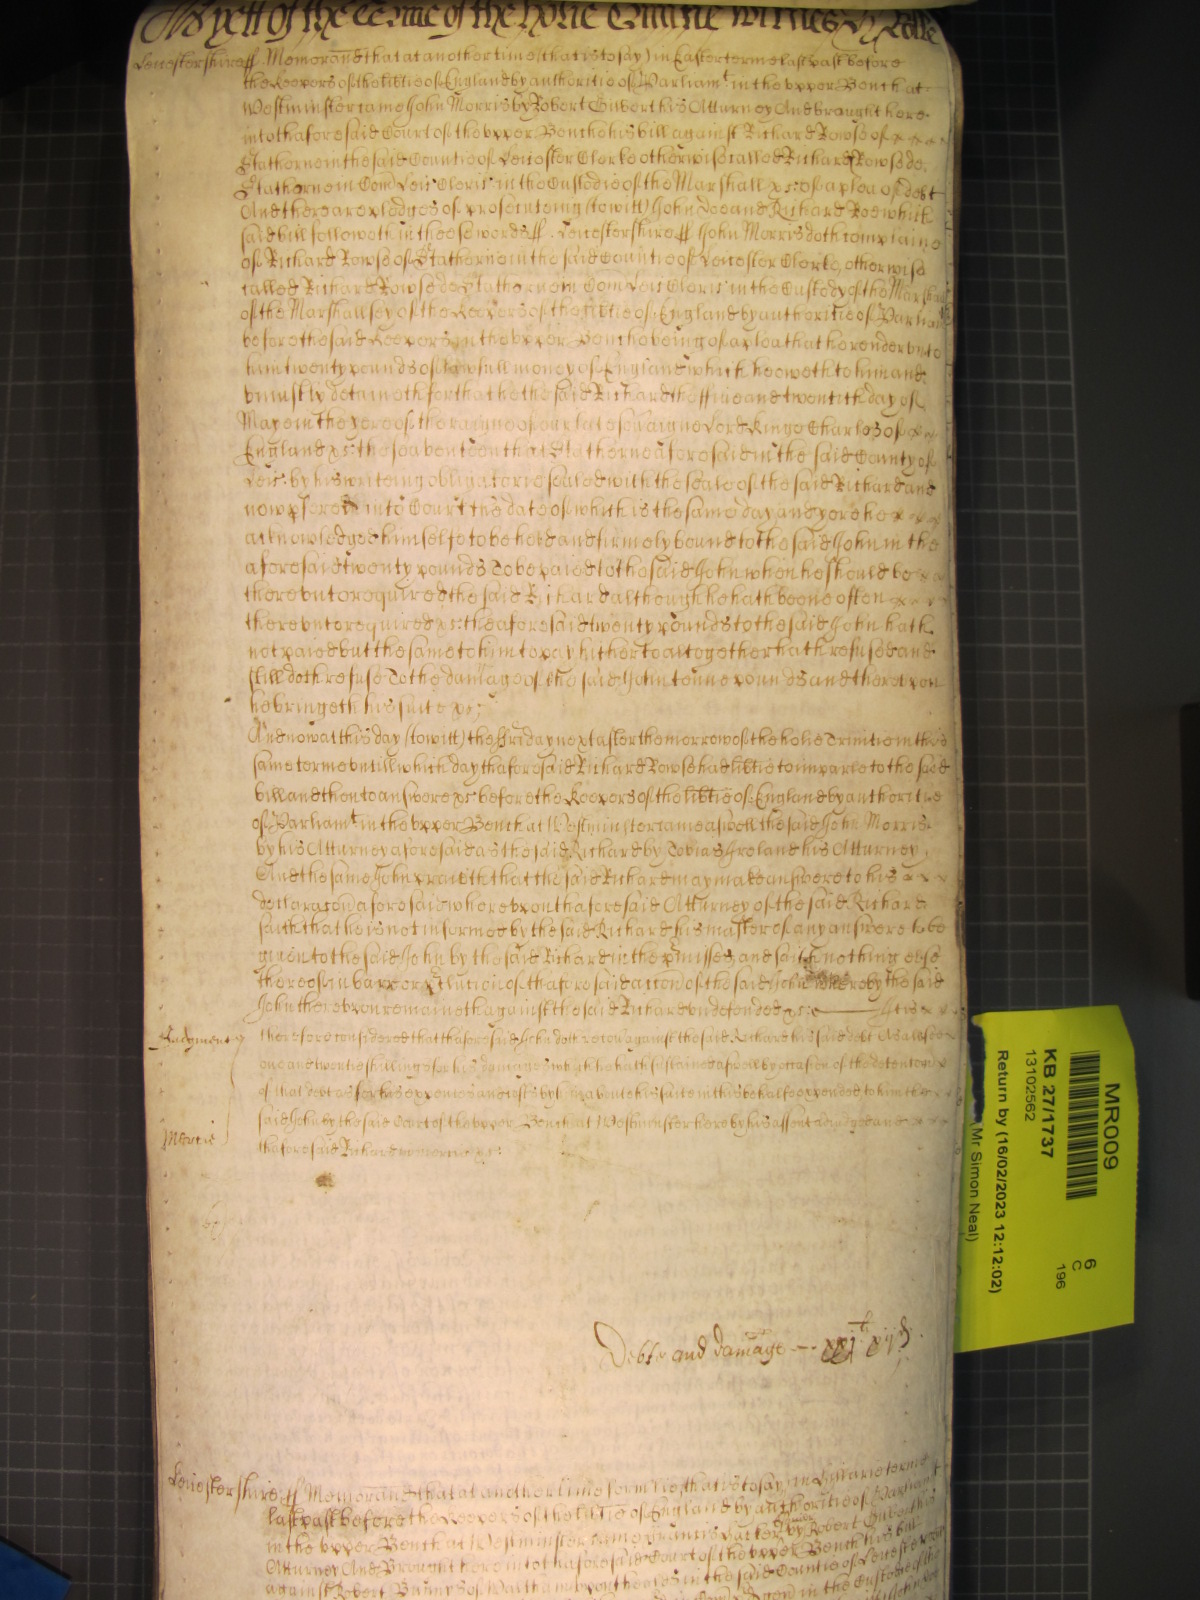 As yett of the Terme of the holie Trinitie witnes H Rolle
Leicestershire ff Memorand that at another time (that is to say) in Easter terme last past before
the Keepers of the libtie of England by authoritie of Parliamt in the vpper Bench at
Westminster came John Morris by Robert his Atturney And brought here
into thaforesaid Court of the vpper Bench his bill against Richard Rowse of
Stathorne in the said Countie of Leicester Clerke otherwise called Richard Rowse de
Stathorne in Com Leic Cleric in the Custodie of the Marshall &c of a plea of debt
And there are pledges of prosecuteing (to witt) John Doe and Richard Roe which
said bill followeth in these words ff Leicestershire ff John Morris doth complaine
of Richard Rowse of Stathorne in the said Countie of Leicester Clerke, otherwise
called Richard Rowse de Stathorne in Com Leic Cleric in the Custody of the Marshall
of the Marshallsey of the Keepers of the libtie of England by authoritie of Parliam
before the said Keepers in the vpper Bench being of a plea that he render vnto
him twenty pounds of lawfull money of England which he oweth to him and
vniustly detaineth for that he the said Richard the ffive and twentith day of
May in the yere of the raigne of our late soveraigne Lord Kinge Charles of
England &c the seaventeenth at Stathorne aforesaid in the said County of
Leic by his writeing obligatorie sealed with the seale of the said Richard and
now pfered into Court the date of which is the same day and yere he
acknowledged himselfe to be held and firmely bound to the said John in the
aforesaid twenty pounds To be paied to the said John when he should be
therevnto required the said Richard although he hath beene often
therevnto required &c the aforesaid twenty pounds to the said John hath
not paied but the same to him to pay hitherto altogether hath refused and
still doth refuse To the damage of the said John tenne pounds and therevpon
he bringeth his suite &c
And now at this day (to witt) the Friday next after the morrow of the holie Trinitie in this
same terme vntill which day thaforesaid Richard Rowse had libtie to imparle to the said
bill and then to answere &c before the Keepers of the libtie of England by authoritie
of Parliamt in the vpper Bench at Westminster came aswell the said John Morris
by his Atturney aforesaid as the said Richard by Tobias Ireland his Atturney
And the same John prayeth that the said Richard may make answere to his
declaracon aforesaid wherevpon thaforesaid Atturney of the said Richard
saith that he is not informed by the said Richard his master of any answere to be
given to the said John by the said Richard in the pmisses and saith nothing else
thereof in barr or pclucion of thaforesaid accon of the said John whereby the said
John therevpon remaineth against the said Richard vndefended &c It is
Judgment therefore considered that thaforesaid John doth recover against the said Richard his said debt As alsoe
one and twentie shillings for his damages which he hath sustained aswell by occasion of the detencon
of that debt as for his expences and costs by him about his suite in this behalfe expended to him the
said John by the said Court of the vpper Bench at Westminster here by his assent adiudged and
Mercie thaforesaid Richard in mercie &c
Debte and damage — xxjli xijd
Leicestershire ff Memorand that at another time formerlie, that is to say, in Hillarie terme
last past before the Keepers of the libtie of England by authoritie of Parliamt
in the vpper Bench at Westminster came Francis by Robert his
Atturney And Brought here into thaforesaid Court of the vpper Bench his bill
against Robert of Waltham vpon the in the said Countie of Leicester
in the Custodie of the
MR009
KB 27/1737
13102562
6
C
196
Return by (16/02/2023 12:12:02)
Mr Simon Neal)